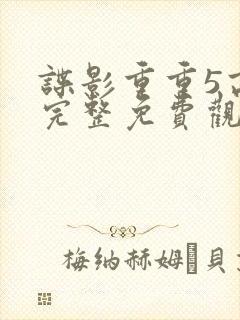 諜影重重5高
完整免費觀
梅納赫姆·貝